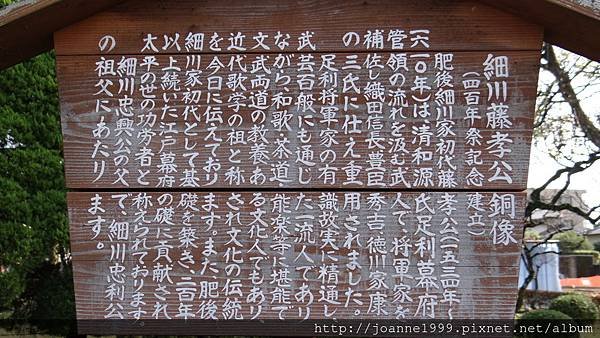 細川藤孝公銅像
(四百年祭記念建立)
肥後細川家初代藤孝公(一五三四~
一六一〇年)は清和源氏足利幕府
管領の流れを汲む武人で、将軍家を
補佐し織田信長、豊臣秀吉、徳川家康
の三氏に仕え重用されました。
足利将軍家の有識故実に精通し、
武芸百般にも通じた一流人であり
ながら、和歌、茶道、能楽等に堪能で
文武両道の教養ある文化人でもあり、
近代歌学の祖と称され文化の伝統
を今日に伝えております。また肥後
細川家初代として基礎を築き、二百年
以上続いた江戸幕府の礎に貢献され
太平の世の功労者と称えられております。
細川忠興公の父で、細川忠利公
の祖父にあたります。
http://joanne1999.pixnet.net/album